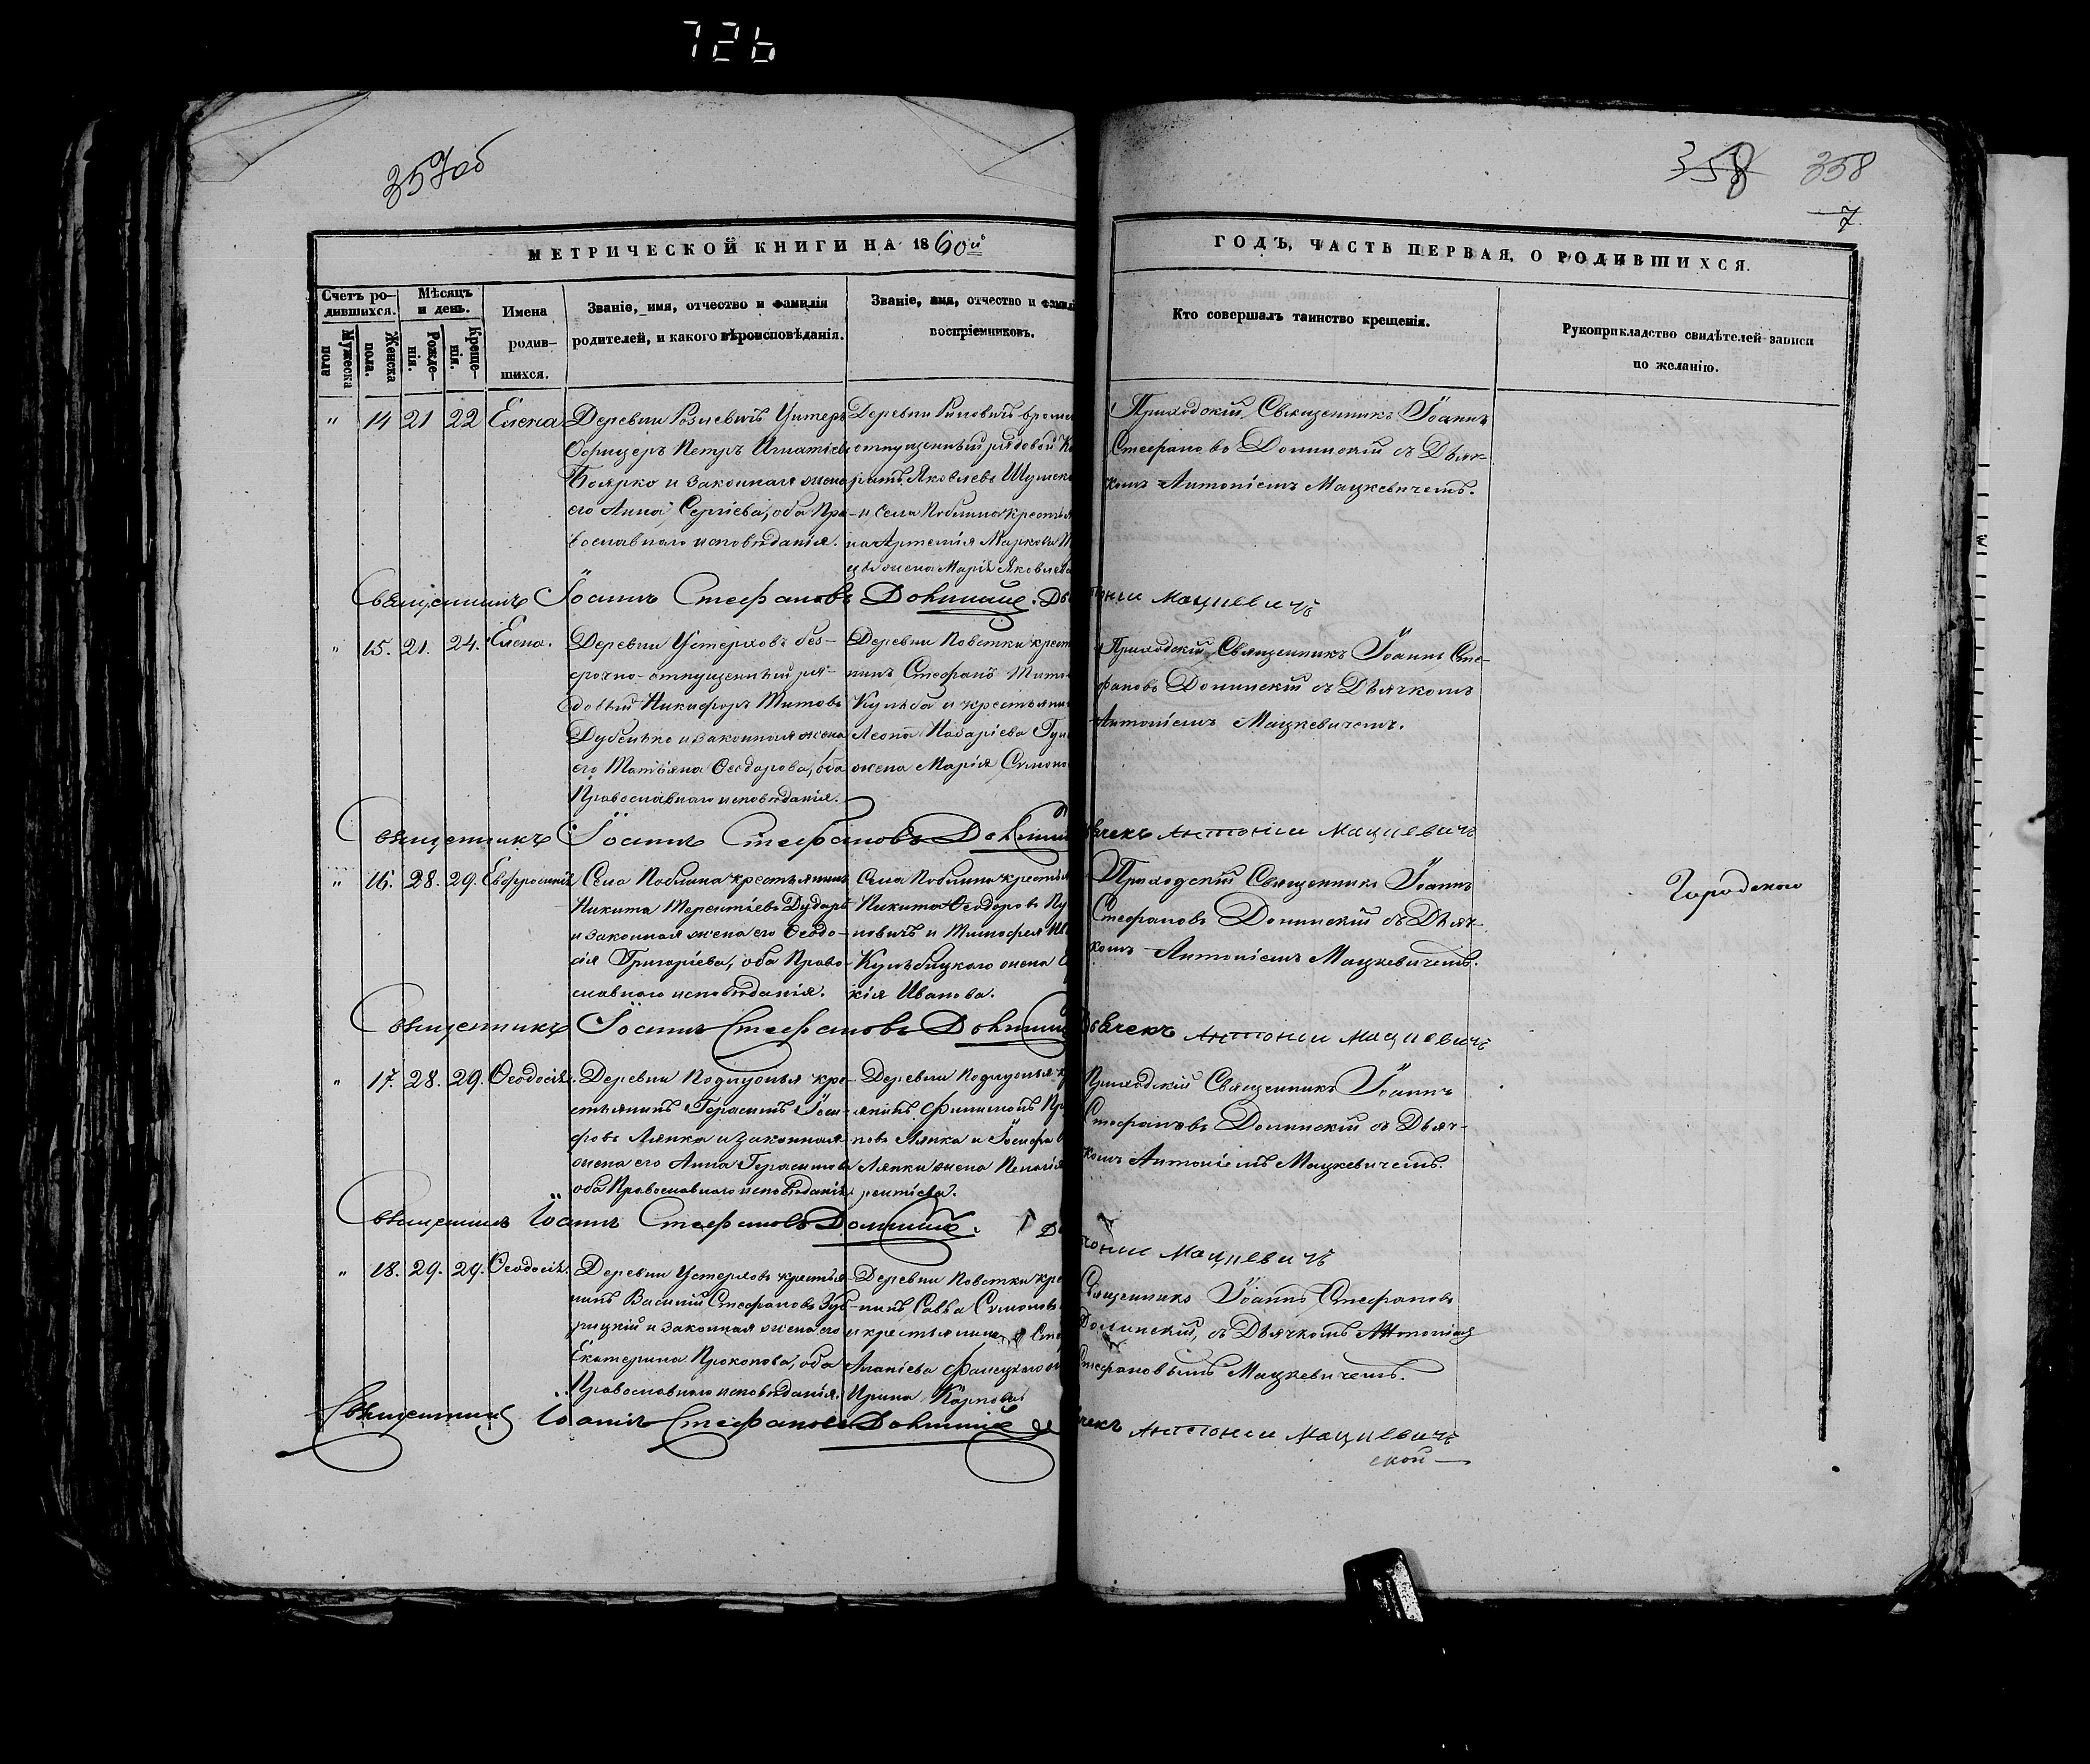 726
357об
358 358
7.
МЕТРИЧЕСКОЙ КНИГИ НА 1860й
ГОДЪ, ЧАСТЬ ПЕРВАЯ, О РОДИВШИХСЯ.
Счетъ ро-
дившихся.
Мужеска пола
Женска пола.
Мѣсяцъ
и день.
Рожде-
нія.
Креще-
нія.
Имена
родив-
шихся.
Званіе, имя, отчество и фамилія
родителей, и какого вѣроисповѣданія.
Званіе, имя, отчество и фамилі
воспріемниковъ.
Кто совершалъ таинство крещенія.
Рукоприкладство свидѣтелей записи
по желанію.
" 14 21 22 Елена
Деревни Унтеръ
Офицеръ Петръ Игнатіевъ
Боярко и законная жена
его Анна Сергіева, оба Пра-
вославнаго исповѣданія.
Деревни
отпущенный рядовой
Яковлевъ
и села Поблина крестья
на Артемія Маркова
жена Марія Яковлева
Приходскій Священникъ Іоаннъ
Стефановъ Долинскій съ Дьяч-
комъ Антоніемъ Мацкевичемъ.
Священникъ Іоаннъ Стефановъ Долинскій. Дь
тоній Мацкевичъ
" 15. 21. 24. Елена.
Деревни Устерховъ без-
срочно-отпущенный ря-
довый Никифоръ Титовъ
Дубенко и законная жена
его Татіяна Ѳеодорова, оба
Православнаго исповѣданія.
Деревни Повстки крест
нинъ Стефанъ Тит
Кульба и крестьяни
Леона Назаріева
жена Марія Симоно
Приходскій Священникъ Іоаннъ Сте-
фановъ Долинскій съ Дьячкомъ
Антоніемъ Мацкевичемъ.
Священникъ Іоаннъ Стефановъ Долинск
ьячекъ Антоній Мацкевичъ
" 16. 28. 29. Евфросинія
Села Поблина крестьянинъ
Никита Терентіевъ Дударь
и законная жена его Ѳеодо-
сія Григоріева, оба Право-
славнаго исповѣданія.
Села Поблина крестья
Никита Ѳеодоровъ
новичъ и Тимофея
Кульбицкаго жена
кія Иванова.
Приходскій Священникъ Іоаннъ
Стефановъ Долинскій съ Дьяч-
комъ Антоніемъ Мацкевичемъ.
Городского
Священникъ Іоаннъ Стефановъ Долинск
Дьячекъ Антоній Мацкевичъ
" 17. 28. 29. Ѳеодосія.
Деревни Подлужья кре-
стьянинъ Герасимъ Іоси-
фовъ Ляпка и законная
жена его Анна Герасимова
оба Православнаго исповѣданія
Деревни Подлужья кр
янинъ Филимонъ
новъ Ляпка и Іосифа
Ляпки жена Пелагія
рентіева.
Приходскій Священникъ Іоаннъ
Стефановъ Долинскій съ Дьяч-
комъ Антоніемъ Мацкевичемъ.
Священникъ Іоаннъ Стефановъ Долинскій. Д
тоній Мацкевичъ
" 18. 29. 29. Ѳеодосія.
Деревни Устерховъ крестья-
нинъ Василій Стефановъ Зуб-
рицкій и законная жена его
Екатерина Прокопова, оба
Православнаго исповѣданія.
Деревни Повстки кре
нинъ Савва Симоновъ
и крестьянина
Ананіева
Ирина Карпова
Священникъ Іоаннъ Стефановъ
Долинскій, съ Дьячкомъ Антоніемъ
Стефановымъ Мацкевичемъ.
Священникъ Іоаннъ Стефановъ Долинскій Дь
ячекъ Антоній Мацкевичъ
ской